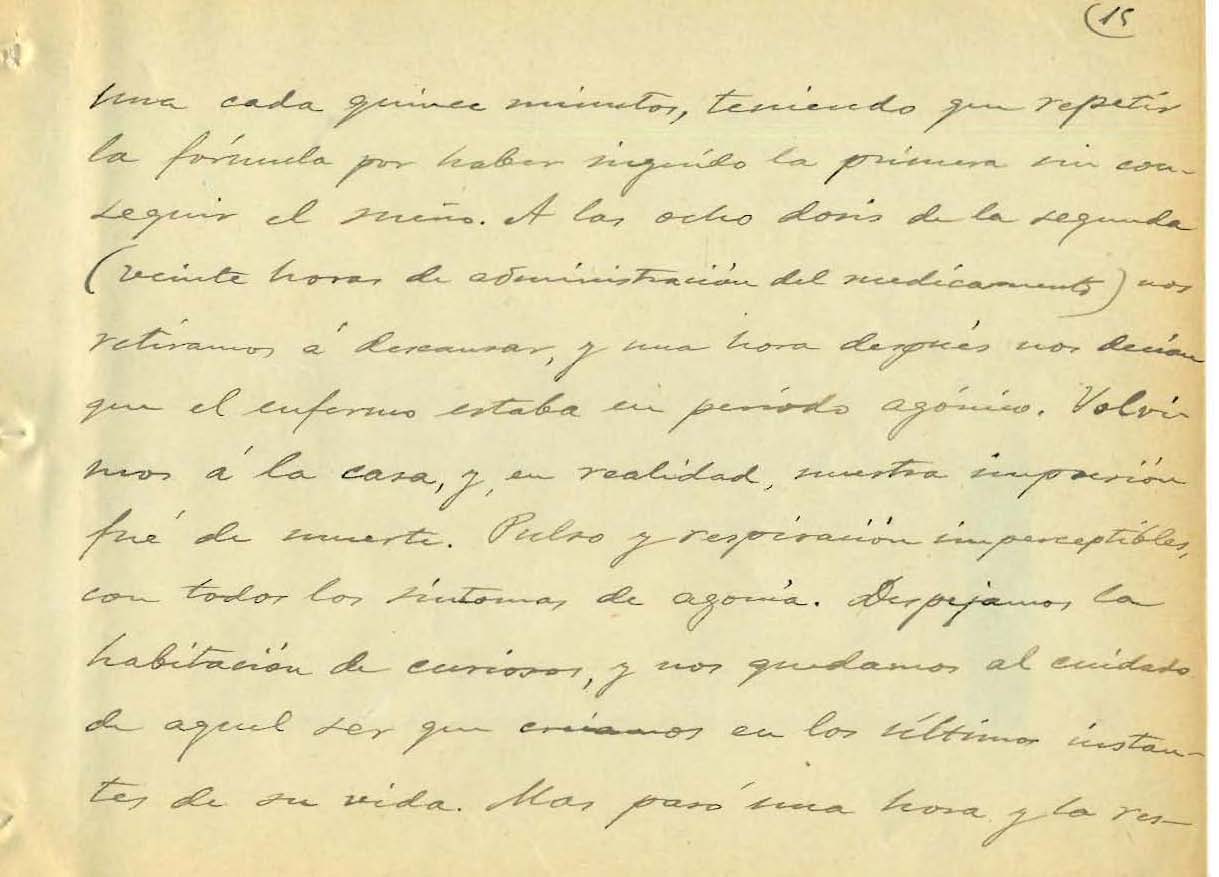 (15
una cada quince minutos, teniendo que repetir
la fórmula por haber ingerido la primera sin con-
seguir el sueño. A las ocho dosis de la segunda
(veinte horas de administración del medicamento) nos
retiramos á descansar, y una hora después nos decían
que el enfermo estaba en periodo agónico. Volvi-
mos á la casa, y, en realidad, nuestra impresión
fué de muerte. Pulso y respiración imperceptibles,
con todos los síntomas de agonía. Despejamos la
habitación de curiosos, y nos quedamos al cuidado
de aquel ser que creíamos en los últimos instan-
tes de su vida. Mas pasó una hora y la res-